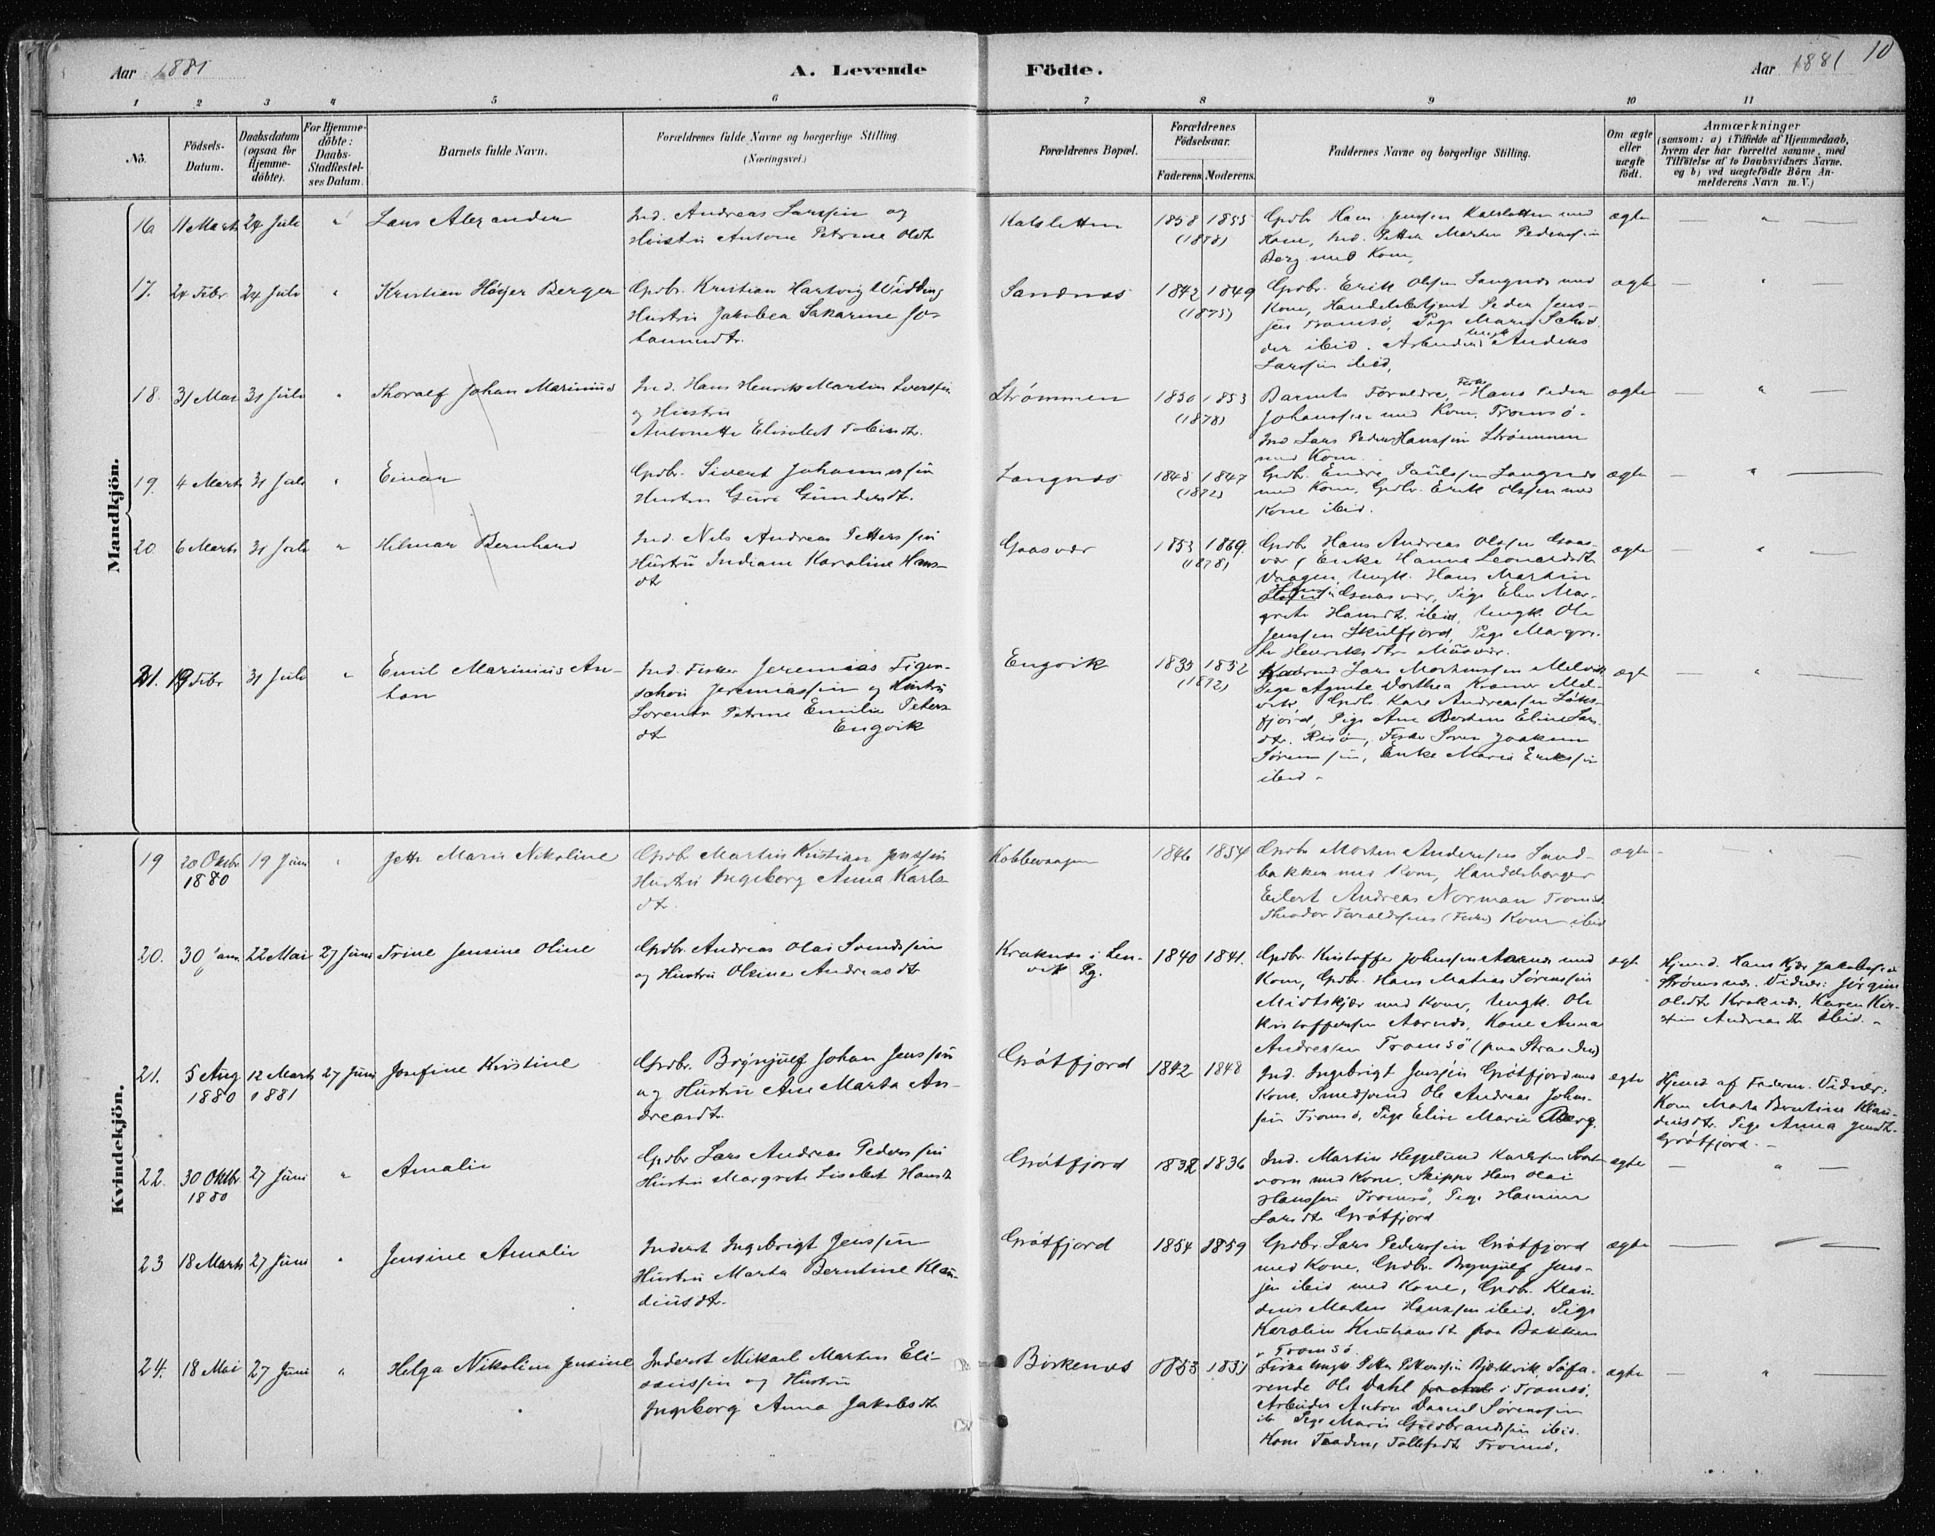 Aar 1881
A. Levende
Födte.
Aar 1881
10
1 2 3 4 5 6 7 8 9 10 11
No.
Födsels-
Datum.
Daabsdatum
(ogsaa for
Hjemme-
döbte).
For Hjemme-
döbte:
Daabs-
Stadfæstel-
ses Datum.
Barnets fulde Navn.
Forældrenes fulde Navne og borgerlige Stilling.
(Næringsvei.)
Forældrenes Bopæl.
Forældrenes
Födselsaar.
Faderens. Moderens.
Faddernes Navne og borgerlige Stilling.
Om ægte
eller
uægte
födt.
Anmærkninger
(saasom: a) i Tilfælde af Hjemmedaab,
hvem der har forrettet samme, med
Tilföielse af to Daabsvidners Navne.
og b) ved uægtefödte Börn An-
melderens Navn m. V.)
Mandkjön.
16 11 Marts 24 Juli " Lars Alexander
Ind. Andreas Larssen og
Hustru Antone Petrine Olsdt
1858 1855
(1878)
Gpdbr Hans Jenssen Kalsletten med
Kone, Ind. Petter Martin Pederssen
Berg med Kone,
ægte — " —
17. 24 Febr 24 Juli " Kristian Høyer Berger
Gpdbr. Kristian Hartvig Widding
Hustru Jakobea Sakarine Jo-
hannesdtr.
Sandnes
1842 1849
(1875)
Gpdbr. Erik Olsen Langnes med
Kone, Handelsbetjent Peder Jens-
sen Tromsø, Pige Maria
ibid. Arbeider Anders
Larssen ibid,
ægte — " —
18. 31 Mai 31 Juli " Thoralf Johan Marinius
Ind. Hans Henrik Martin Iverssen
og Hustru
Antonette Elisabet Tobiasdt.
Strømmen
1850 1853
(1878)
Barnets Forældre, Hans Peder
Johanssen med Kone, Tromsø.
Ind Lars Peder Hanssen Strømmen
med Kone.
ægte — " —
19. 4 Marts 31 Juli " Einar
Gpdbr. Sivert Johannessen
Hustru Guri Gundersdt.
Langnes
1845 1847
(1872)
Gpdbr. Endre Paulssen Langnes
med Kone, Gpdbr. Erik Olssen med
Kone ibid.
ægte — " —
20 6 Marts 31 Juli " Hilmar Bernhard
Ind. Nils Andreas Petterssen
Hustru Indiane Karoline Hans-
dt
Gaasvær
1853
(1878)
Gpdbr Hans Andreas Olssen Gaas-
vær, Enke Hanna Leonardsdt
Vaagen, Ungk. Hans Martin
Gaasvær, Pige Elen Mar-
grete Hansdt. ibid, Ungk. Ole
Jenssen Skulfjord, Pige Margre-
te Henriksdtr Musvær.
ægte — " —
21. 19 Febr 31 Juli " Emil Marinius An-
ton
Ind. Fisker Jeremias Figen-
schou Jeremiassen og Hustru
Lorentse Petrine Emilie Peters-
dt Engvik
Engvik
1835 1852
(1872)
Lars Mortenssen Melvik
Pige Agnete Dorthea Kramer Mel-
vik, Gpdbr. Kare Andreassen Løks-
fjord, Pige Ane Bertine Eline Lars-
dtr. Risø, Fisker Sven Joakim
Sørenssen, Enke Maria Erikssen
ibid.
ægte — " —
Kvindekjön.
19 20 Oktbr 19 Juni " Jette Maria Nikoline
1880
Gpdbr Martin Kristian Jenssen
Hustru Ingeborg Anna Karls-
dt.
Kobbevaagen
1846 1854
Gpdbr Morten Anderssen Sand-
bakken med Kone, Handelsborger
Eilert Andreas Norman Tromsø
Theodor Taraldssen (Fisker) Kone ibid
ægte — " —
20. 30 Jan 22 Mai 27 Juni Trine Jensine Oline
Gpdbr. Andreas Olai Svendssen
og Hustru Oleine Andreasdt
Kraknes i Len-
vik Pg.
1840 1841.
Gpdbr. Kristoffer Johnsen Aarnes med
Kone, Gpdbr. Hans Matias Sørenssen
Midtskjær med Kone, Ungk. Ole
Kristofferssen Aarnes, Kone Anna
Andressen Tromsø (paa Stranden)
ægte
Hjemd. Hans Kjær Jakobssen
Strømsnes. Vidner: Jørgine
Olsdt Kraknes, Karen Kir-
stine Andreasdt ibid.
21. 5 Aug 12 Marts 27 Juni Josefine Kristine
1880 1881
Gpdbr. Brynjulf Johan Jenssen
og Hustru Ane Marta An-
dreasdt.
Grøtfjord
1842 1848
Ind. Ingebrigt Jenssen Grøtfjord med
Kone, Smedsvend Ole Andreas Johns-
sen Tromsø, Pige Eline Marie Berg.
ægte
Hjemd af Faderen. Vidner:
Kone Marta Berntine Klau-
diusdt. Pige Anna Jensdt.
Grøtfjord.
22. 30 Oktbr 27 Juni " Amalie
1880
Gpdbr Lars Andreas Pederssen
Hustru Margrete Lisabet Hansdt
Grøtfjord
1832 1836
Ind. Martin Heggelund Karlssen
med Kone, Skipper Hans Olai
Hanssen Tromsø, Pige
Larsdtr Grøtfjord
ægte — " —
23 18 Marts 27 Juni " Jensine Amalie
Inderst Ingebrigt Jenssen
Hustru Marta Berntine Klau-
diusdt.
Grøtfjord
1854 1859
Gpdbr Lars Pederssen Grøtfjord
med Kone, Gpdbr. Brynjulf Jens-
sen ibid med Kone, Gpdbr. Klau-
dius Madus Hanssen ibid. Pige
Karoline Kristiansdt paa Bakken
i Tromsø.
ægte — " —
24. 18 Mai 27 Juni " Helga Nikoline Jensine
Inderst Mikael Martin Eli-
assen og Hustru
Ingeborg Anna Jakobsdt
Birkenes
1853
Fisker Ungk Petter Petterssen Bjerkvik, Søfa-
rende Ole Dahl i Tromsø,
Arbeider Anton Daniel Sørenssen
ib Pige Marie Guldbrandssen ibid.
Kone Tollefsdt Tromsø,
ægte — " —